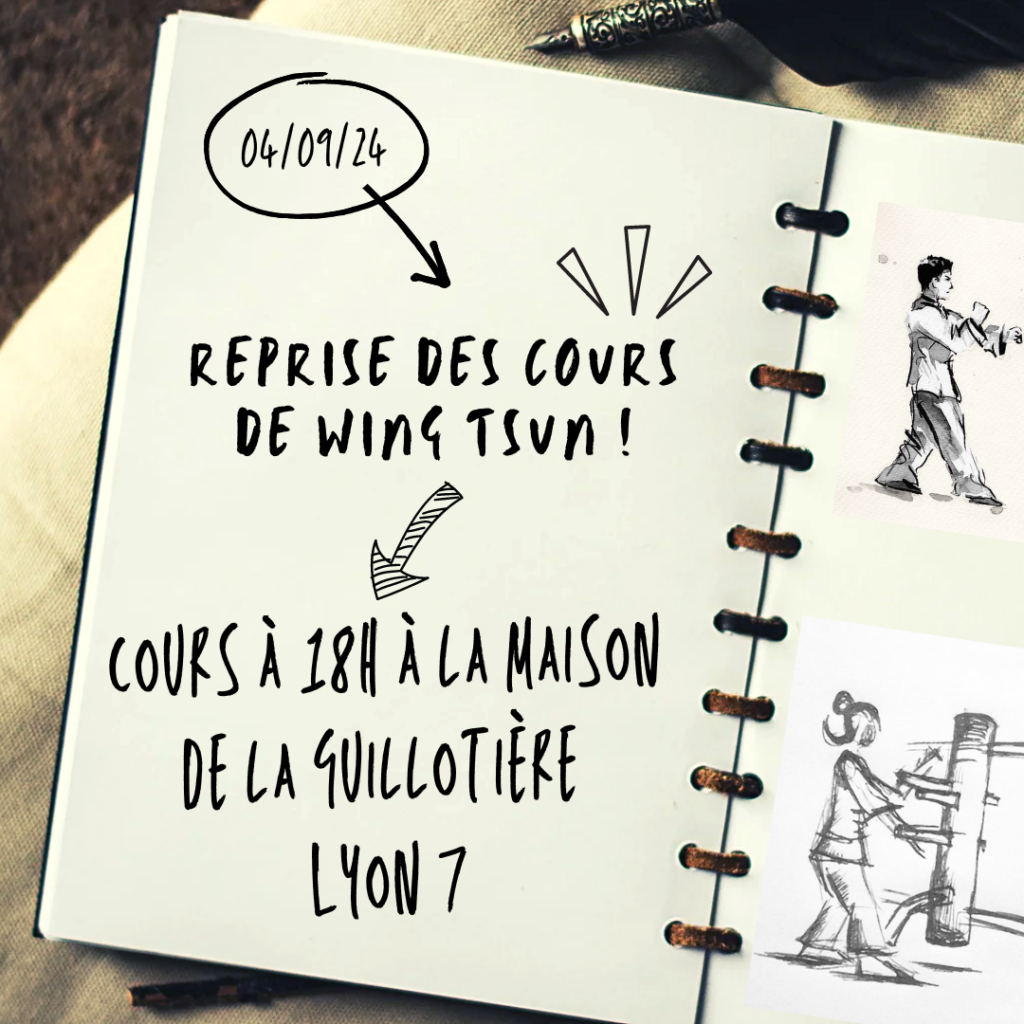 04/09/24
REPRISE DES COURS
DE WING TSUN !
COURS À 18H À LA MAISON
DE LA GUILLOTIÈRE
LYON 7